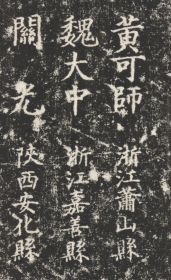 黃可師 浙江蕭山縣
魏大中 浙江嘉善縣
關光 陝西安化縣